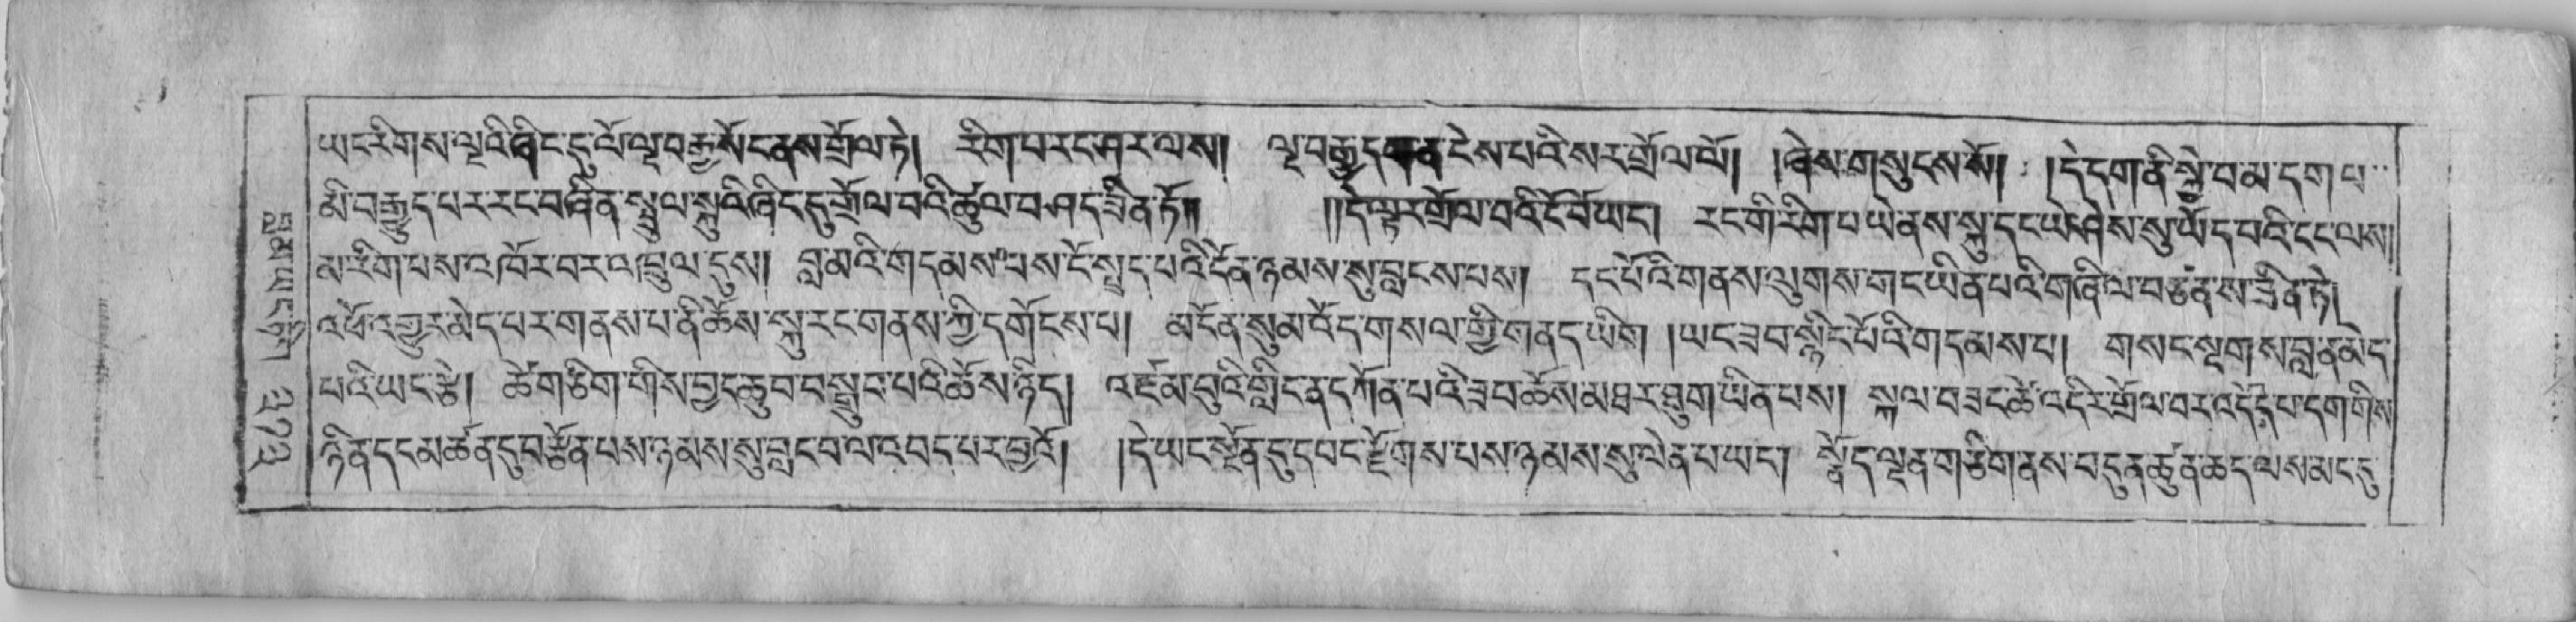 ཡང་རིགས་ལྔའི་ཞིང་དུ་ལོ་ལྔ་བརྒྱ་སོང་ནས་གྲོལ་ཏེ། རིག་པ་རང་ཤར་ལས། ལྔ་བརྒྱ་དག་ན་ངེས་པའི་སར་གྲོལ་ལོ། །ཞེས་གསུངས་སོ། །དེ་དག་ནི་སྐྱེ་བ་མ་དག་པ་
མི་བརྒྱུད་པར་རང་བཞིན་སྤྲུལ་སྐུའི་ཞིང་དུ་གྲོལ་བའི་ཚུལ་བཤད་ཟིན་ཏོ།། །།དེ་ལྟར་གྲོལ་བའི་ངོ་བོ་ཡང་། རང་གི་རིག་པ་ཡེ་ནས་སྐུ་དང་ཡེ་ཤེས་སུ་ཡོད་པའི་ངང་ལས།
མ་རིག་པས་འཁོར་བར་འཁྲུལ་དུས། བླ་མའི་གདམས་པས་ངོ་སྤྲད་པའི་དོན་ཉམས་སུ་བླངས་པས། དང་པོའི་གནས་ལུགས་གང་ཡིན་པའི་གཞི་ལ་བཙན་ས་ཟིན་ཏེ།
འཕོ་འགྱུར་མེད་པར་གནས་པ་ནི་ཆོས་སྐུ་རང་གནས་ཀྱི་དགོངས་པ། མངོན་སུམ་འོད་གསལ་གྱི་གནད་ཡིག །ཡང་ཟབ་སྙིང་པོའི་གདམས་པ། གསང་སྔགས་བླ་ན་མེད་
པའི་ཡང་རྩེ། ཚེ་གཅིག་གིས་བྱང་ཆུབ་བསྒྲུབ་པའི་ཆོས་ཉིད། འཛམ་བུའི་གླིང་ན་དཀོན་པའི་ཟབ་ཆོས་མཐར་ཐུག་ཡིན་པས། སྐལ་བཟང་ཚེ་འདིར་གྲོལ་བར་འདོད་པ་དག་གིས་
ཉིན་དང་མཚན་དུ་བརྩོན་པས་ཉམས་སུ་བླང་བ་ལ་འབད་པར་བྱའོ། །དེ་ཡང་སྔོན་དུ་དབང་རྫོགས་པས་ཉམས་སུ་ལེན་པ་ཡང་། སྣོད་ལྡན་གཅིག་ནས་བདུན་ཚུན་ཆད་ལས་མང་དུ་